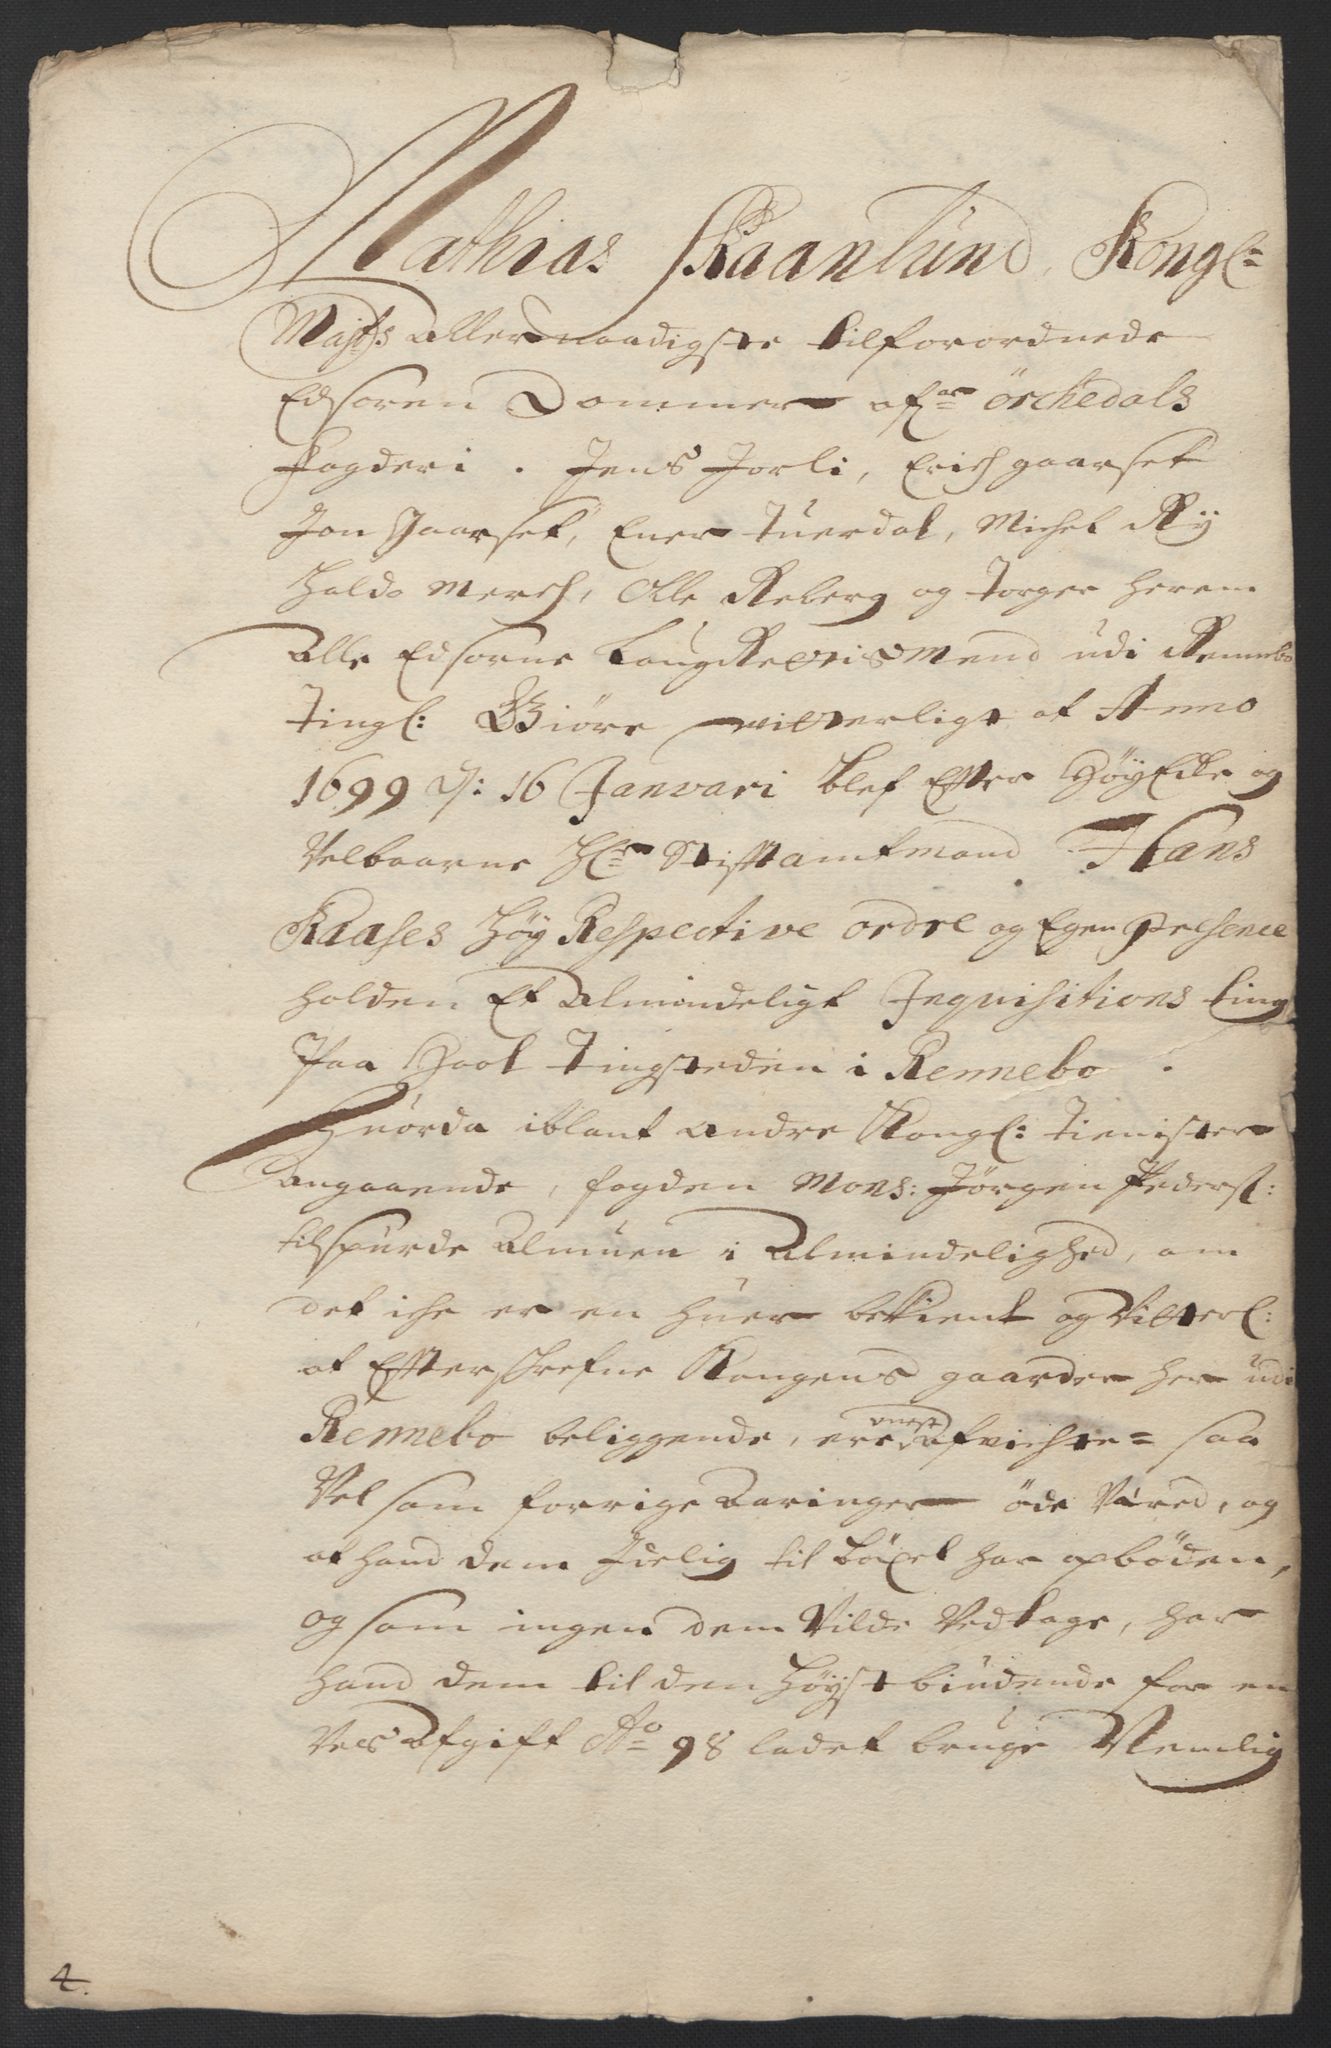 Mathias Skaanlund, Kongl:
Maÿts Allernaadigste tilforordnede
Edsoren Dommer ofr Örchedals
fogderi. Jens Jorli, Erich gaarset
Jon Jaarset, Ener Tuerdal, Michel Ry
Haldo Merch, Olle Reberg og Torger Herem
Alle Edsorne LaugRettismend udi Rennebo
Tingl: Giöre witterligt at Anno
1699 d: 16 Janvari blef Efter HöyEdle og
Velbaarne Hr Stifftamtmand Hans
Kaases Höy Respective ordre og Egen Presence
holden Et Almindeligt Inqvisitions ting
Paa Hool Tingsteden i Rennebo.
Huorda iblant andre Kongl: Tienister
Angaaende, fogden Mons: Jörgen Peders:
tilspurde Almuen i Almindelighed, om
det iche er en huer bekient og Vitterl:
at Efterschrefne Kongens gaarder her udi
Rennebo beliggende, ere nest afvichte= saa
Vel som forrige Aaringer öde Vered, og
at hand dem Idelig til böxel har opböden,
og som ingen dem Vilde Vedtage, har
hand dem til den Höystbiudende for en
Ves Afgift Ao 98 ladet bruge Nemlig
4.